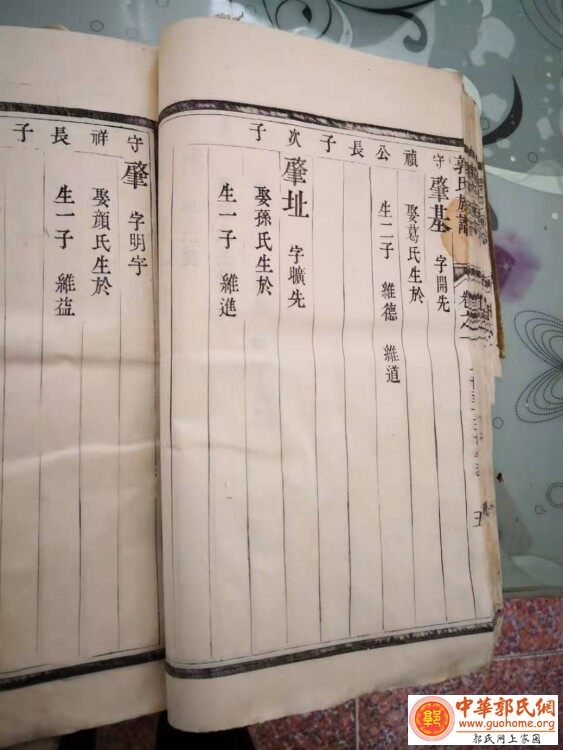 郭氏族譜
守禎公長子
肇基 字開先
娶葛氏生於
生二子 維德 維道
次子
肇址 字曠先
娶孫氏生於
生一子 維進
守祥長子
肇 字明宇
娶顏氏生於
生一子 維益
中華郭氏網
www.guohome.org
郭氏网上家園